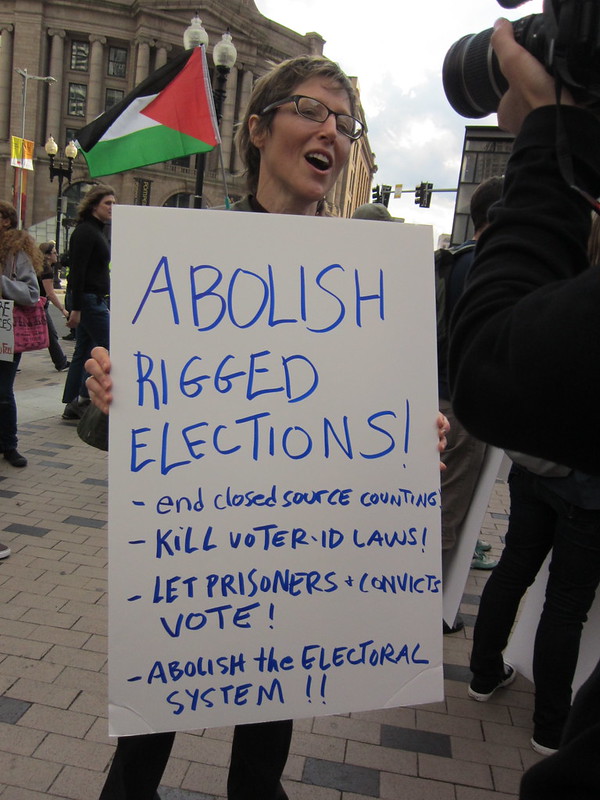 ABOLISH
RIGGED
ELECTIONS!
- end closed source COUNTING!
- KiLL VOTER-ID LAWS!
- LET PRISONERS + CONVICTS
VOTE!
- ABOLISH the ELECTORAL
SYSTEM !!